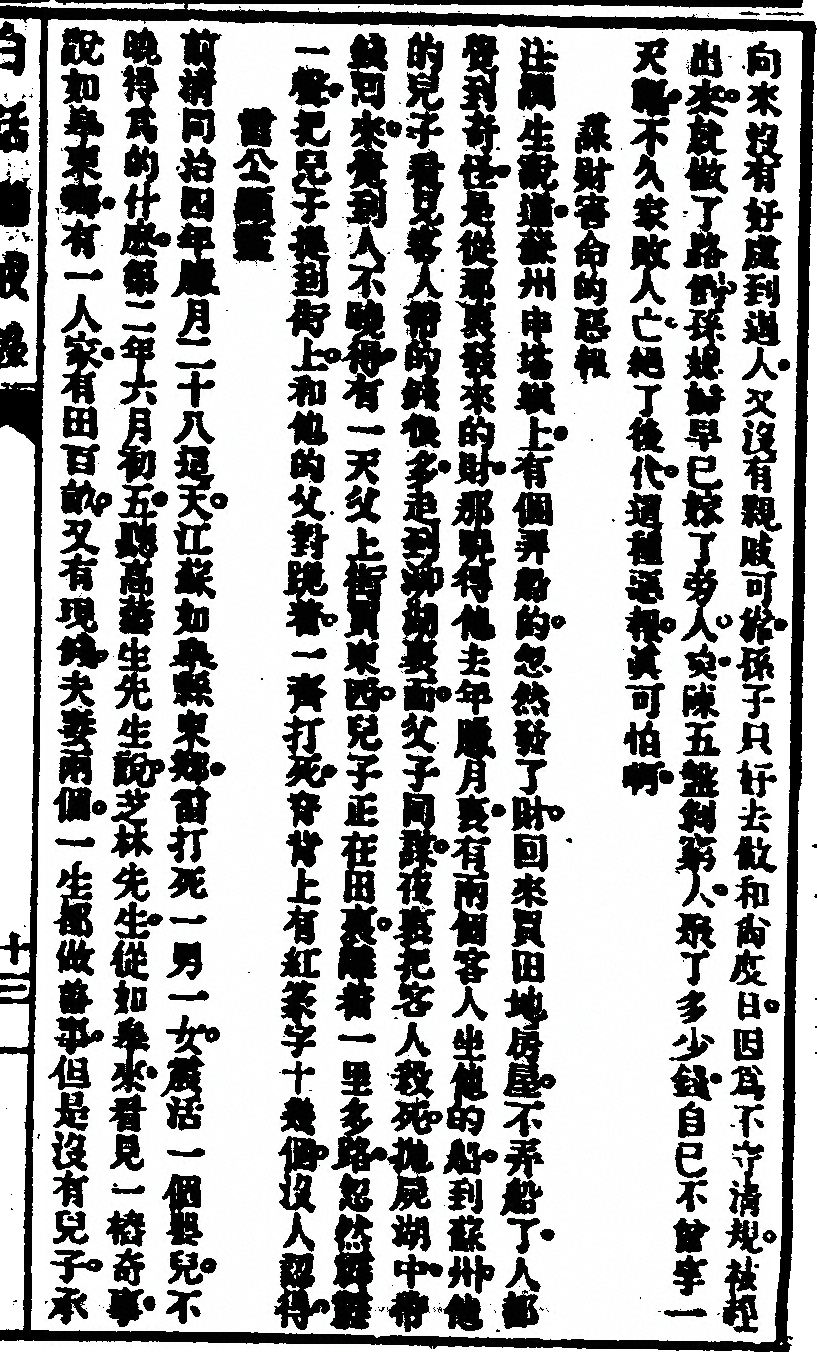 向來沒有好處到過人又沒有親戚可靠孫子只好去做和尚度日因爲不守清規被趕
出來就做了路倒孫媳婦早已嫁了旁人唉陳五盤剝窮人聚了多少錢自己不曾享一
天福不久家敗人亡絕了後代這種惡報眞可怕啊
謀財害命的惡報
汪調生說道蘇州申塔壩上有個弄船的忽然發了財回來買田地房屋不弄船了人都
覺到奇怪是從那裏發來的財那曉得他去年臘月裏有兩個客人坐他的船到蘇州他
的兒子看見客人帶的錢很多走到澱湖裏面父子同謀夜裏把客人殺死拋屍湖中帶
錢囘來覺到人不曉得有一天父上街買東西兒子正在田裏離着一里多路忽然霹靂
一聲把兒子提到街上和他的父對跪着一齊打死脊背上有紅篆字十幾個沒人認得
雷公顯靈
前淸同治四年臘月二十八這天江蘇如皋縣東鄉雷打死一男一女震活一個嬰兒不
曉得爲的什麽第二年六月初五聽高藹生先生說芝林先生從如皋來看見一樁奇事
說如皋東鄉有一人家有田百畝又有現錢夫妻兩個一生都做善事但是沒有兒子承
白話 戒 錄
十三